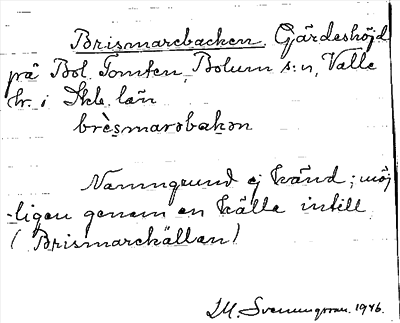 Brismarebacken Gärdeshöjd
på Bol Tomten, Bolum s:n, Valle
hr. i Skb. län
brèsmarəbakən
Namngrund ej känd; möj
-ligen genom en källa intill
(Brismarekällan)
M. Svenungsson. 1946.